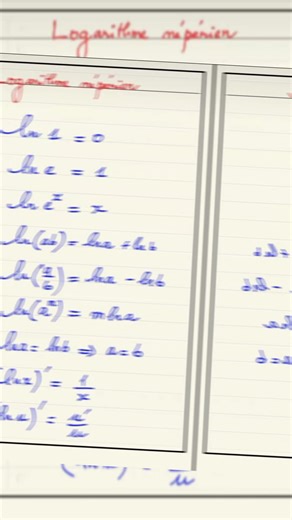 Logarithme népérien
Logarithme népérien
ln 1 = 0
ln e = 1
ln eˣ = x
ln(ab) = ln a + ln b
ln(a/b) = ln a - ln b
ln(aⁿ) = n ln a
ln a = ln b ⇒ a = b
(ln x)' = 1/x
(ln u)' = u'/u